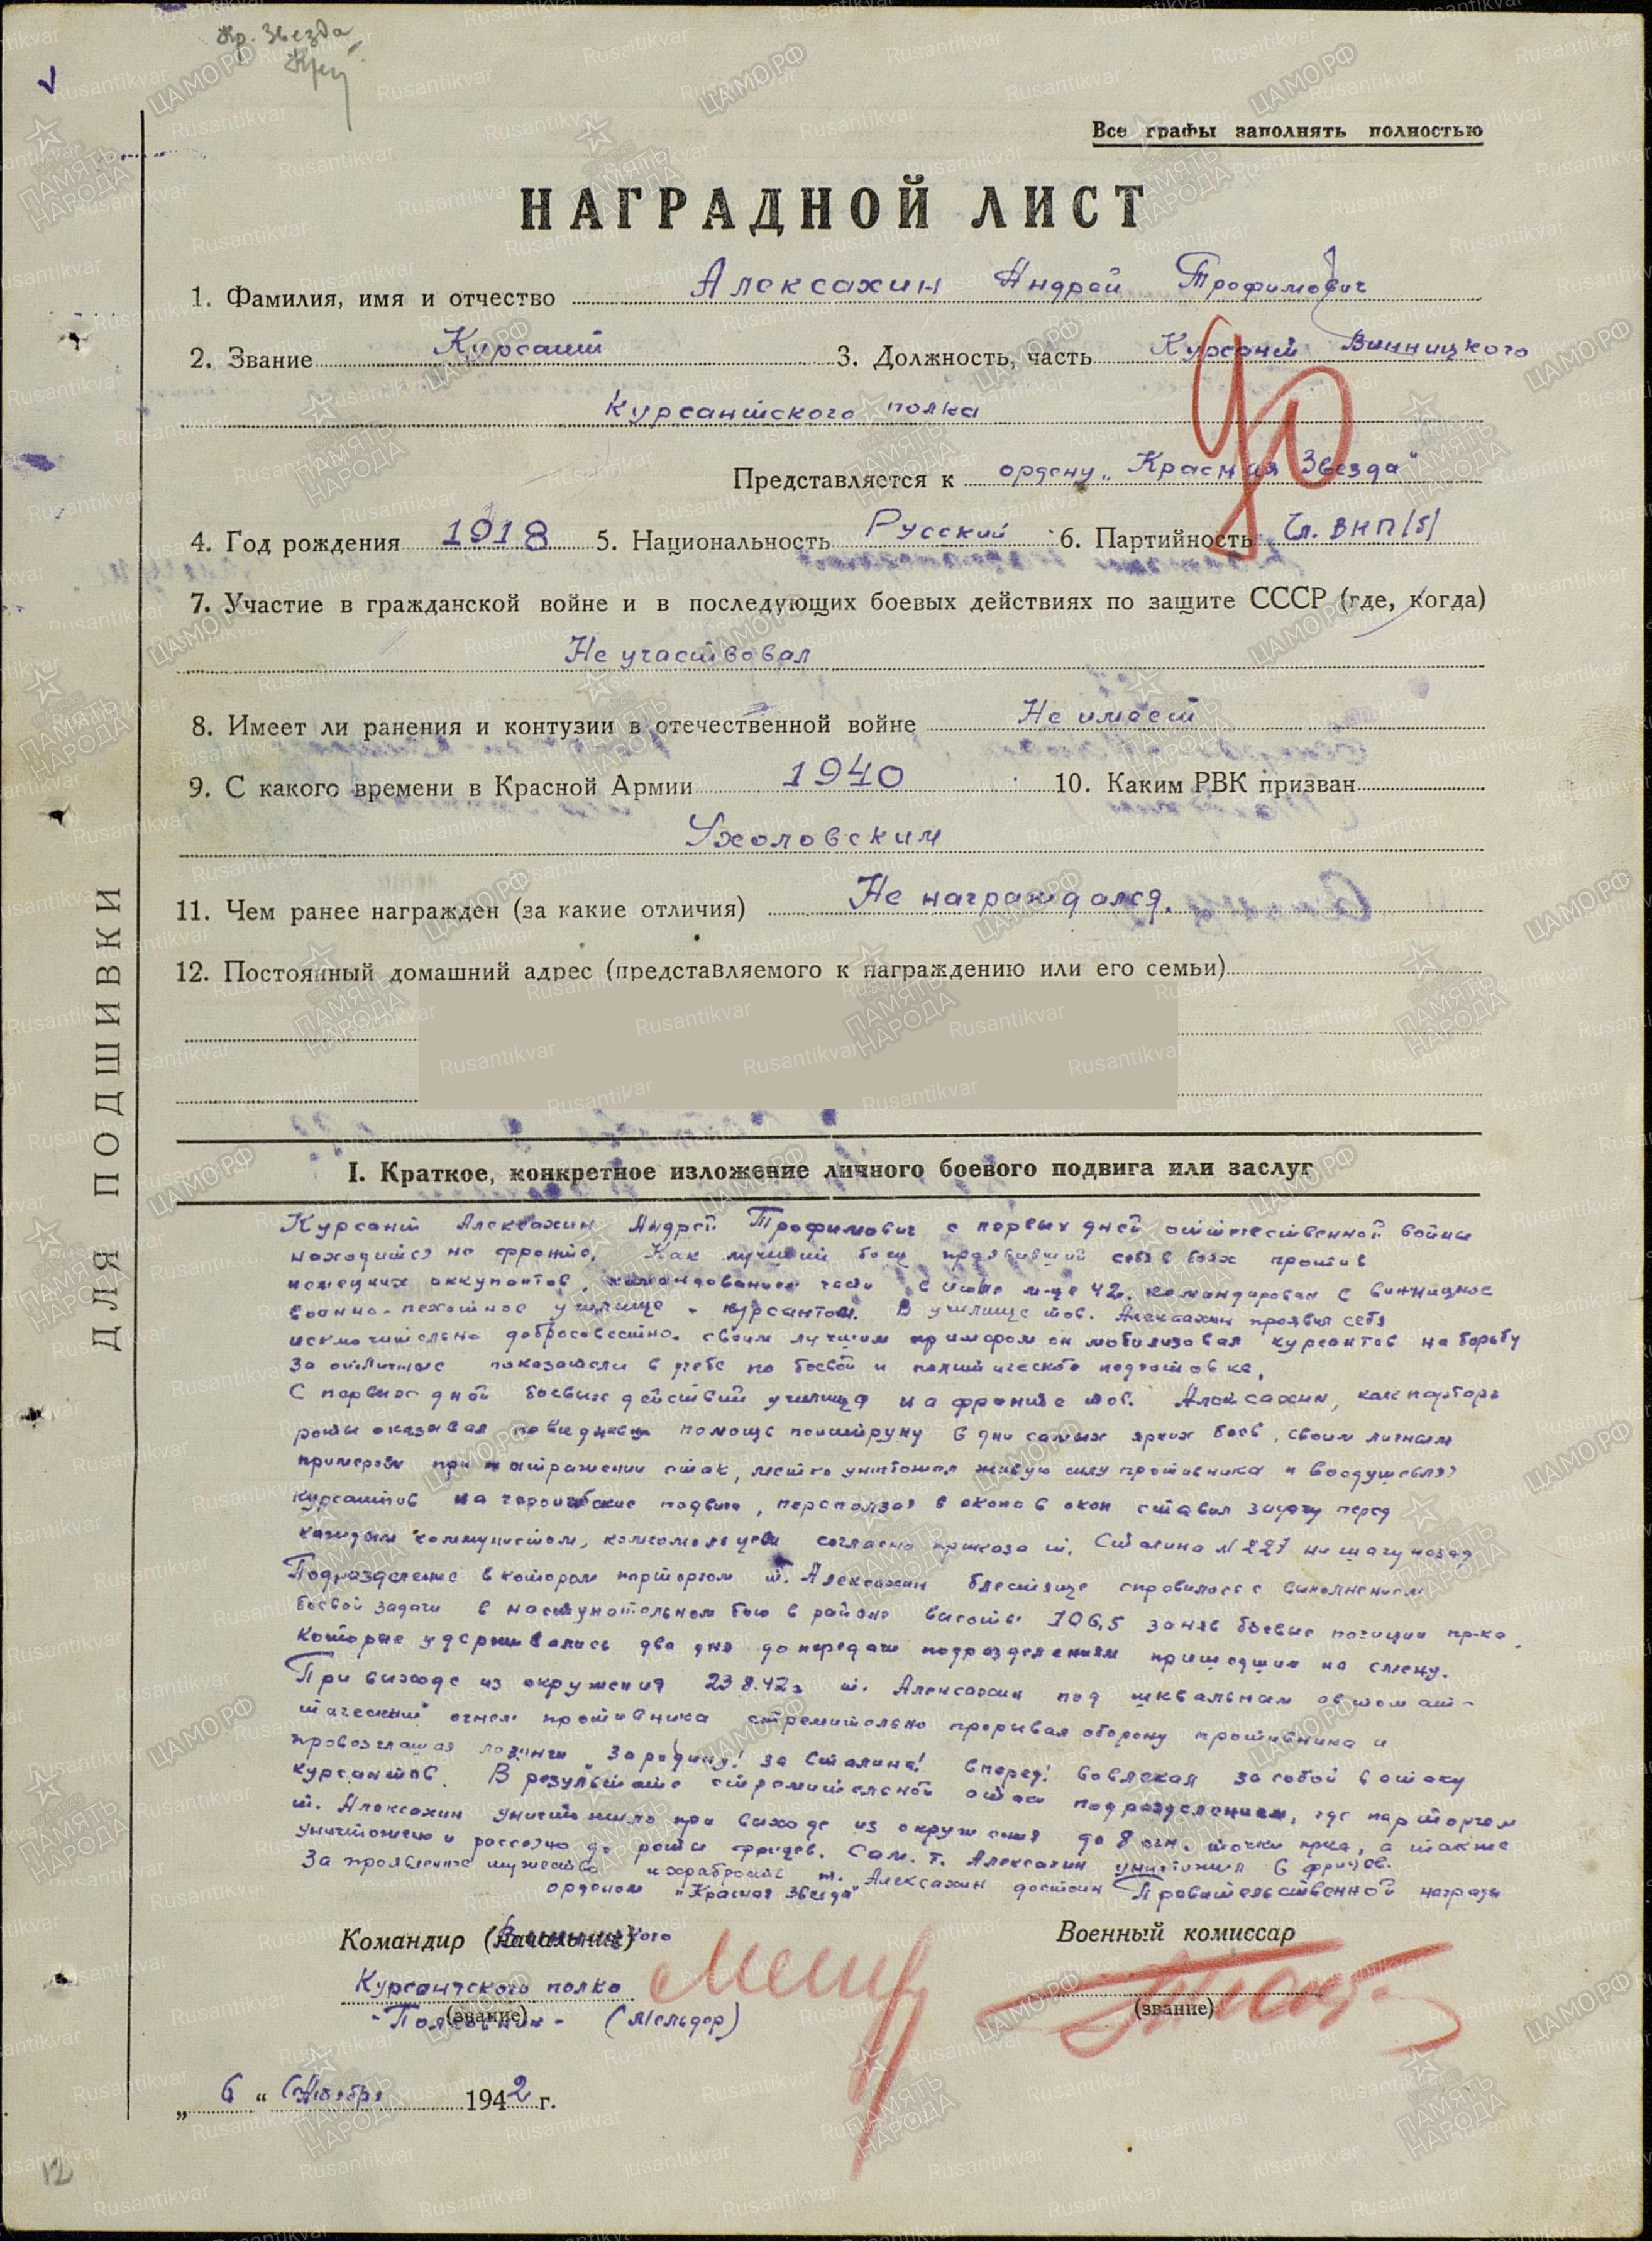 Кр. Звезда
Все графы заполнять полностью
НАГРАДНОЙ ЛИСТ
1. Фамилия, имя и отчество Алексахин Андрей Трофимович
2. Звание Курсант 3. Должность, часть Курсант Винницкого
Курсантского полка
Представляется к ордену „Красная Звезда"
4. Год рождения 1918 5. Национальность Русский 6. Партийность Чл. ВКП/б/
7. Участие в гражданской войне и в последующих боевых действиях по защите СССР (где, когда)
Не участвовал
8. Имеет ли ранения и контузии в отечественной войне Не имеет
9. С какого времени в Красной Армии 1940 10. Каким РВК призван
Ухоловским
11. Чем ранее награжден (за какие отличия) Не награждался.
12. Постоянный домашний адрес (представляемого к награждению или его семьи)
ДЛЯ ПОДШИВКИ
I. Краткое, конкретное изложение личного боевого подвига или заслуг
Курсант Алексахин Андрей Трофимович с первых дней отечественной войны
находится на фронте. Как лучший боец проявивший себя в боях против
немецких оккупантов, командованием части в июне м-це 42. командирован в Винницкое
военно-пехотное училище - курсантом. В училище тов. Алексахин проявил себя
исключительно добросовестно. своим лучшим примером он мобилизовал курсантов на борьбу
за отличные показатели в учебе по боевой и политической подготовке,
С первых дней боевых действий училища на фронте тов. Алексахин, как парторг
роты оказывал помощь политруку в дни самых ярых боев, своим личным
примером при отражении атак, метко уничтожал живую силу противника и воодушевлял
курсантов на геройские подвиги, переползая с окопа в окоп ставил задачу перед
каждым коммунистом, комсомольцем согласно приказа т. Сталина N 227 ни шагу назад
Подразделение в котором парторгом т. Алексахин блестяще справилось с выполнением
боевой задачи в наступательном бою в районе высоты 106,5 заняв боевые позиции пр-ка,
которые удерживались два дня до передачи подразделениям пришедшим на смену.
При выходе из окружения 23.8.42г т. Алексахин под шквальным автомат-
тическим огнем противника стремительно прорывал оборону противника и
провозглашая лозунги „За родину! за Сталина! вперед! вовлекая за собой в атаку
курсантов. В результате стремительной атаки подразделением, где парторгом
т. Алексахин уничтожило при выходе из окружения до 8 огн. точки прка, а также
уничтожено и рассеяно до роты фрицев. Сам. т. Алексахин уничтожил 6 фрицев.
За проявленное мужество и храбрость т. Алексахин достоин Правительственной награды
орденом „Красная Звезда"
Командир (начальник) Винницкого
Военный комиссар
Курсантского полка
(звание)
(звание)
- Полковник - (Мельдер)
„ 6 " Октября 1942 г.
12
ПАМЯТЬ НАРОДА
ЦАМО.РФ
Rusantikvar